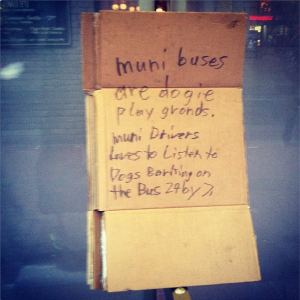 muni buses
are dogie
play gronds.
muni Drivers
Loves to Listen to
Dogs Barking on
the Bus 24by7